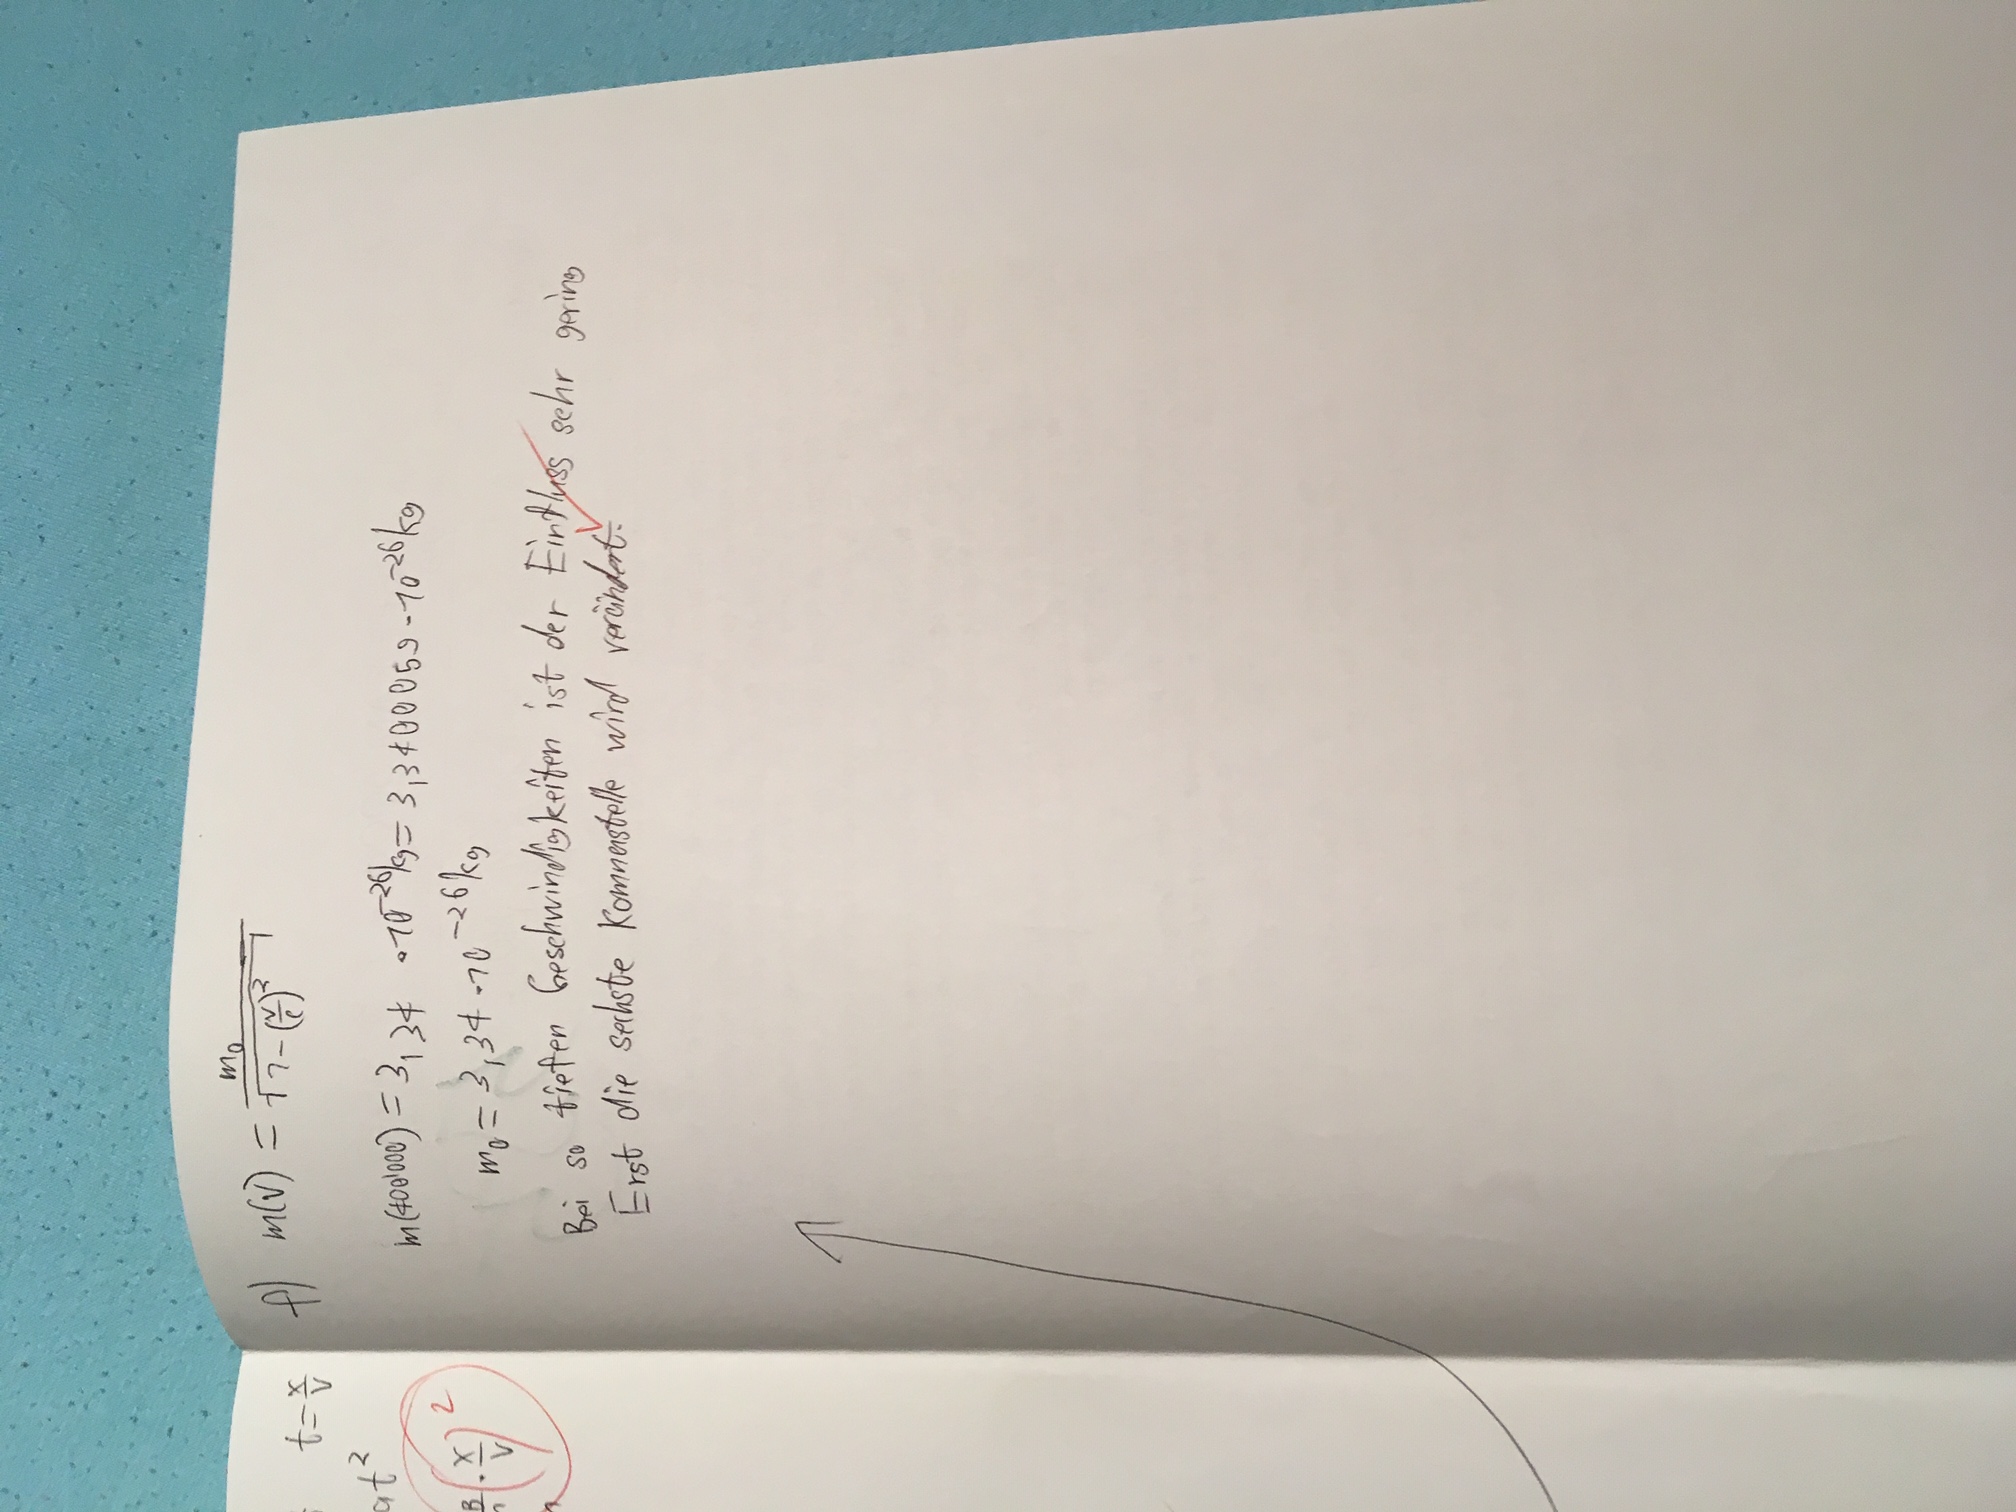 t = x/v
at²
· (x/v)²
f) m(v) = m₀ / √(1 - (v/c)²)
m(400'000) = 3,34 · 10⁻²⁶ kg = 3,3400059 · 10⁻²⁶ kg
m₀ = 3,34 · 10⁻²⁶ kg
Bei so tiefen Geschwindigkeiten ist der Einfluss sehr gering
Erst die sechste Kommastelle wird verändert.